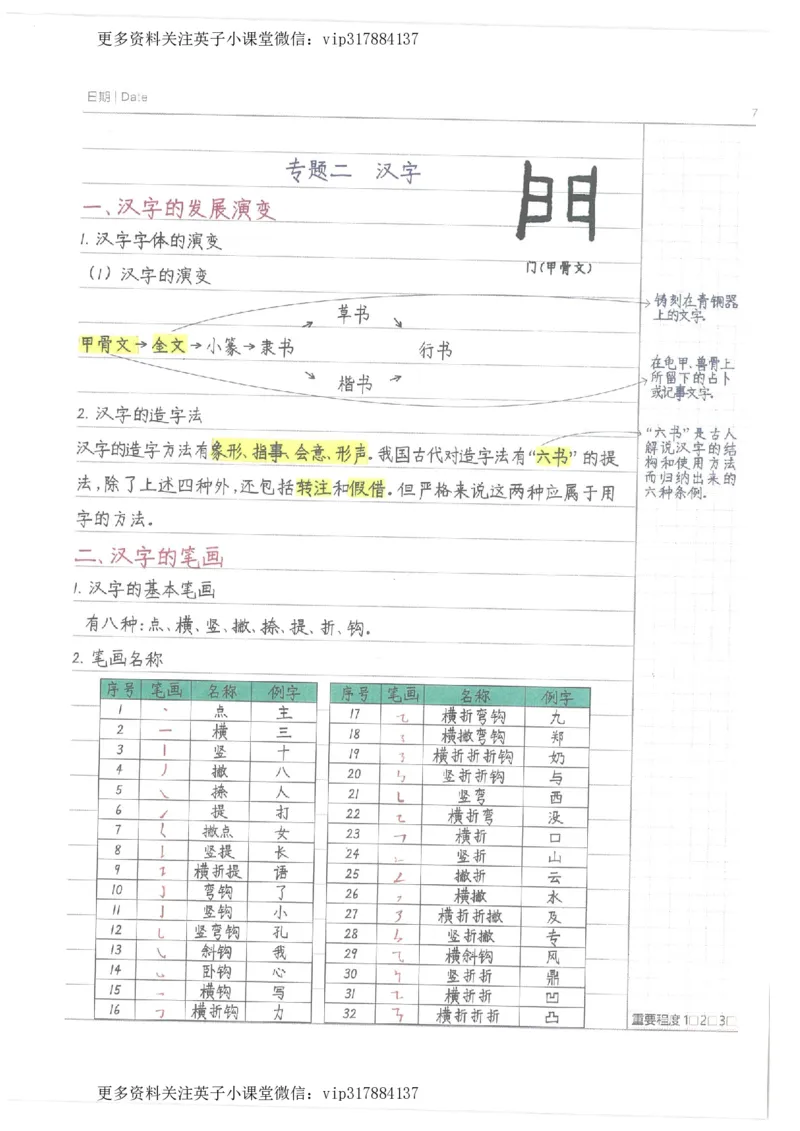 更多资料关注英子小课堂微信：vip317884137
日期 | Date
7
专题二 汉字
一、汉字的发展演变
1. 汉字字体的演变
（1）汉字的演变
門
门(甲骨文)
草书
甲骨文→金文→小篆→隶书 行书
楷书
铸刻在青铜器
上的文字。
在龟甲、兽骨上
所留下的占卜
或记事文字。
2. 汉字的造字法
汉字的造字方法有象形、指事、会意、形声。我国古代对造字法有“六书”的提
法，除了上述四种外，还包括转注和假借。但严格来说这两种应属于用
字的方法。
“六书”是古人
解说汉字的结
构和使用方法
而归纳出来的
六种条例。
二、汉字的笔画
1. 汉字的基本笔画
有八种：点、横、竖、撇、捺、提、折、钩。
2. 笔画名称
序号 笔画 名称 例字 序号 笔画 名称 例字
1 点 主 17 横折弯钩 九
2 横 三 18 横撇弯钩 郑
3 竖 十 19 横折折折钩 奶
4 撇 八 20 竖折折钩 与
5 捺 人 21 竖弯 西
6 提 打 22 横折弯 没
7 撇点 女 23 横折 口
8 竖提 长 24 竖折 山
9 横折提 语 25 撇折 云
10 弯钩 了 26 横撇 水
11 竖钩 小 27 横折折撇 及
12 竖弯钩 孔 28 竖折撇 专
13 斜钩 我 29 横斜钩 风
14 卧钩 心 30 竖折折 鼎
15 横钩 写 31 横折折 凹
16 横折钩 力 32 横折折折 凸
重要程度 1□2□3□
更多资料关注英子小课堂微信：vip317884137